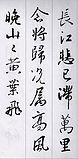 長江悲已滯萬里
念將歸況屬高風
晚山山黃葉飛